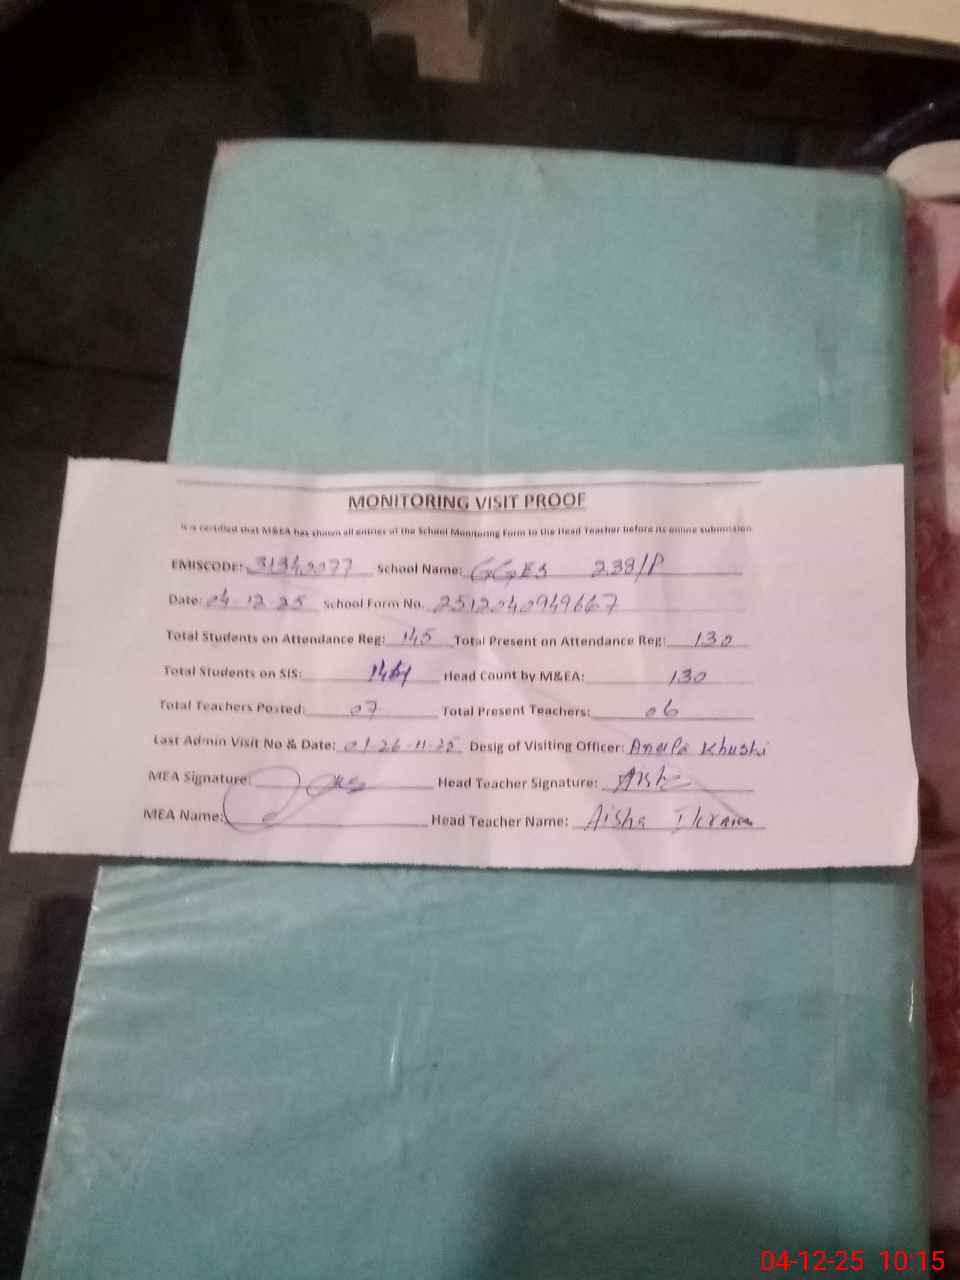 MONITORING VISIT PROOF
It is certified that M&EA has shown all entries of the School Monitoring Form to the Head Teacher before its online submission.
EMISCODE: 31342077 School Name: GGES 238/P
Date: 04-12-25 School Form No. 2512040949667
Total Students on Attendance Reg: 145 Total Present on Attendance Reg: 130
Total Students on SIS: Head Count by M&EA: 130
Total Teachers Posted: 07 Total Present Teachers: 06
Last Admin Visit No & Date: 01-26-11-25 Desig of Visiting Officer: Khushi
MEA Signature: Head Teacher Signature:
MEA Name: Head Teacher Name: Aisha Ikram
04-12-25 10:15